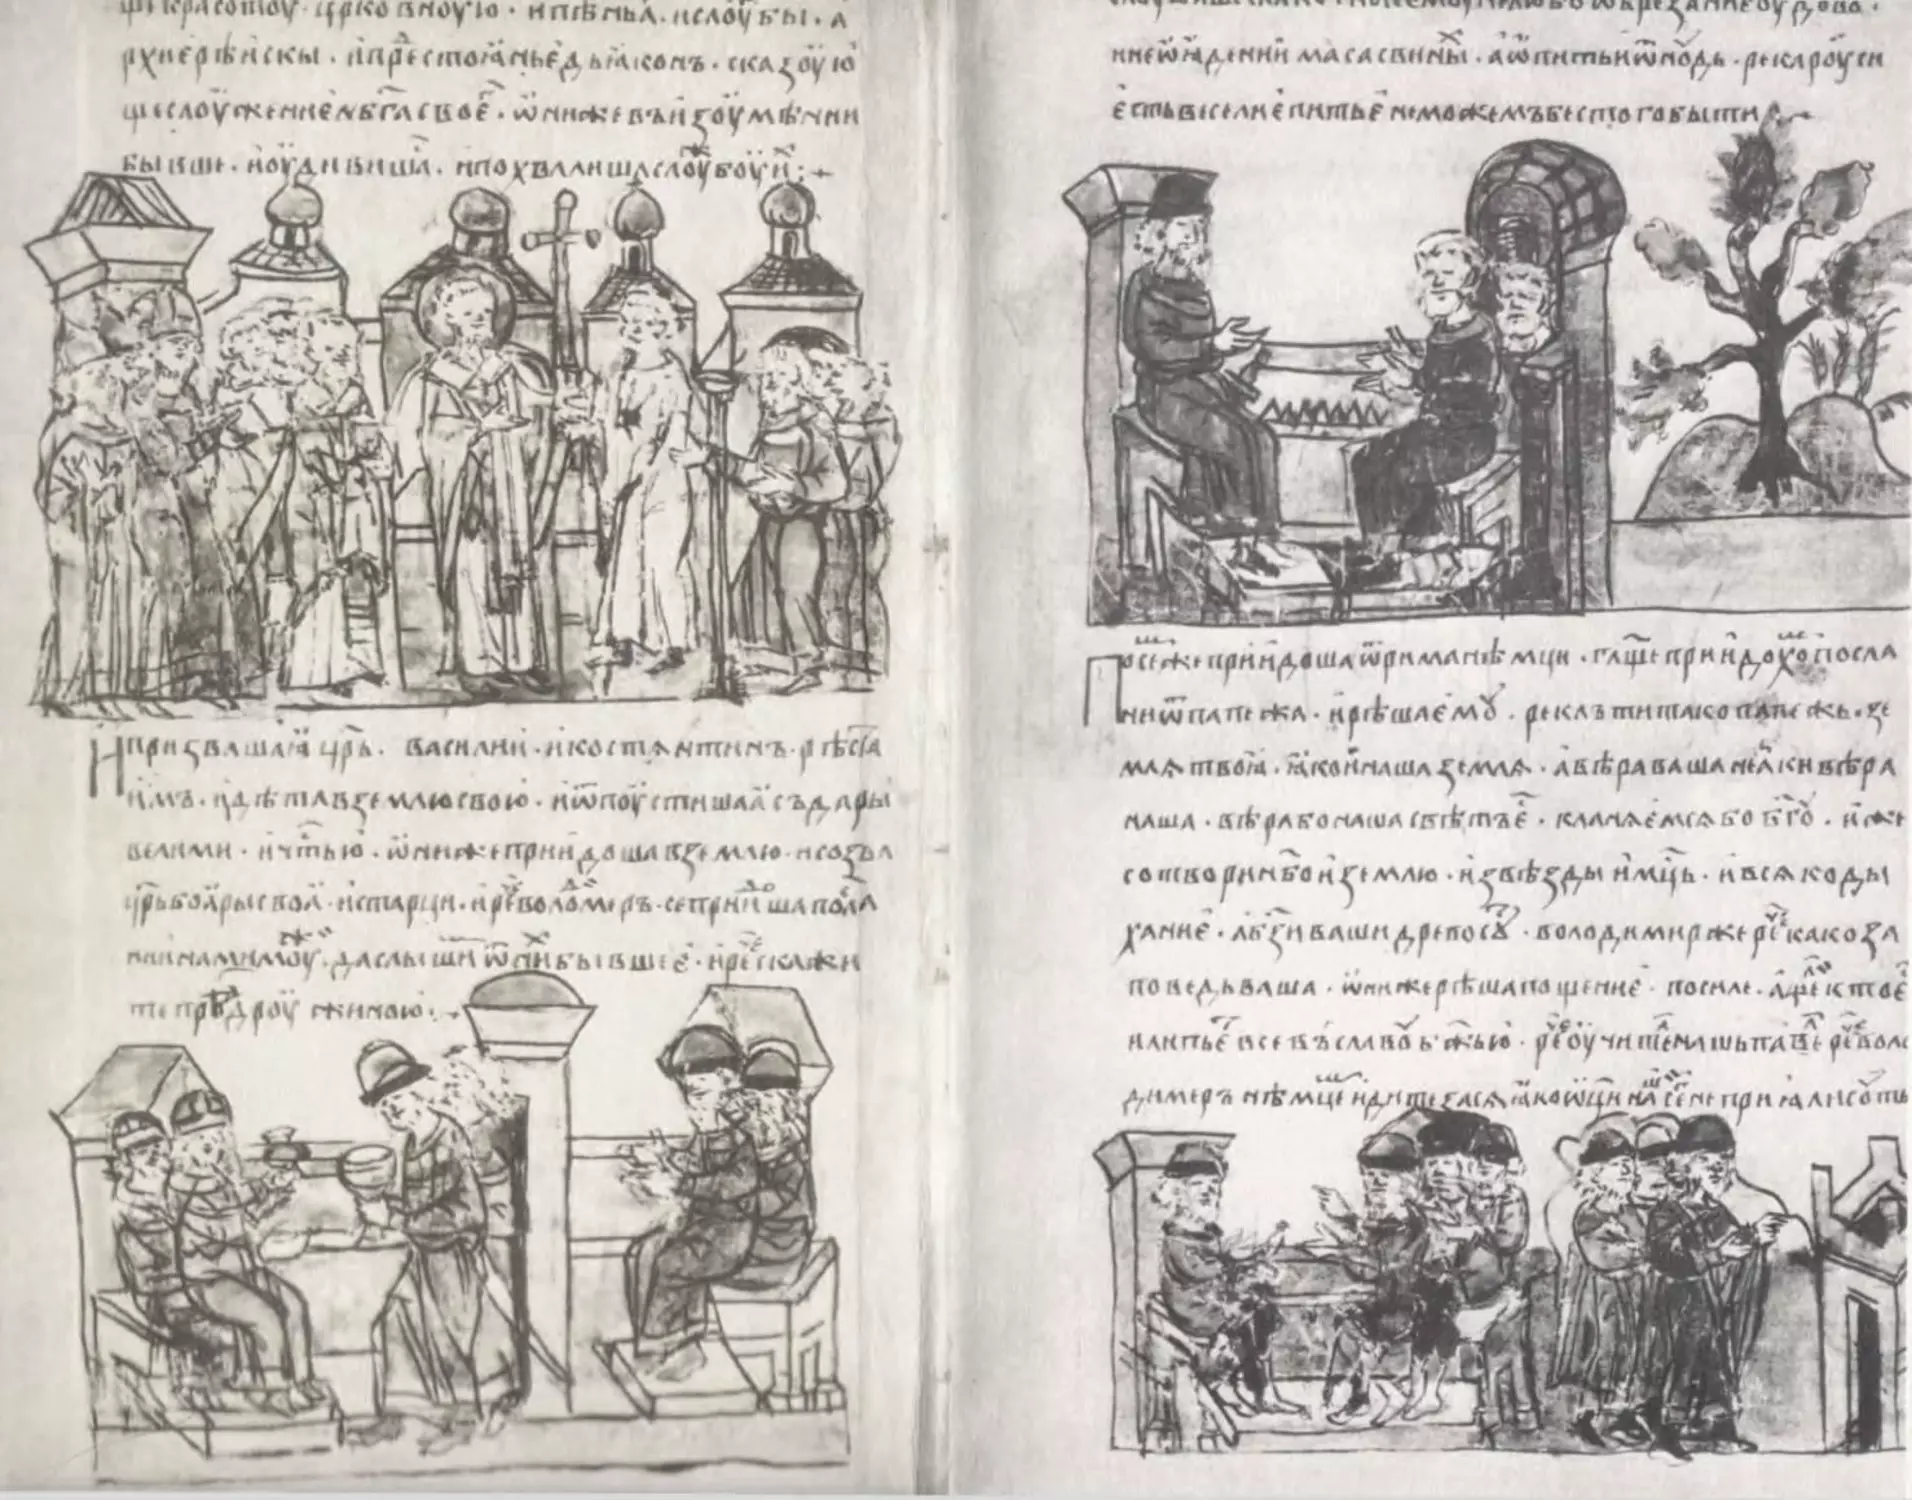 щи красотоу црковноую · и пѣньꙗ · и слоубы · а
рхиерѣискы · и прⷭестоꙗньє дьꙗконъ · сказоую
ще слоужение б҃га своєⷢ · ѡни же въ изоумѣнии
бывше · и оудивишаⷭ · и похвалиша слоуⷤбоу иⷯ :
И призваша ꙗ цр҃ь · василии · и костѧнтинъ · рѣста
имъ · идѣта в землю свою · и ѿпоустиша ꙗ съ дары
велими · и чтⷭью · ѡни же приидоша в землю · и созва
цр҃ь боꙗры своꙗ · и старци · и рⷱе володимеръ · се приидоша посла
нии нами моуⷤ · да слышиⷨ ѿ ниⷯ бывшеє · и рⷱе скажи
те прⷣе дроужиною :
и не ѿ ꙗдении мѧса свинаⷢ · а ѿ питьи ѿноⷣ · река роуси
єсть веселиє питьє не можемъ бес того быти
По сеⷨ же приидоша ѿ рима нѣмци · гл҃ще приидохоⷨ посла
нии ѿ папежа · и рѣша ємоу · реклъ ти тако папежь · зе
млѧ твоꙗ · ꙗко и наша землѧ · а вѣра ваша не аки вѣра
наша · вѣра бо наша свѣтъ є · кланѧємсѧ бо б҃гоу · иже
сотвори нб҃о и землю · и звѣзды и мц҃ь · и всѧко ды
ханиє · а бз҃и ваши древо соуⷮ · володимир же рⷱе кака за
поведь ваша · ѡни же рѣша пощениє · по силе · аще кто є
или пьєⷮ все въ славоу бж҃ью · рⷱе оучитⷧь нашь паⷡлъ · рⷱе воло
димеръ нѣмцеⷨ идите ѡпѧⷮ ꙗко ѿци наши сего не приꙗли соуⷮ